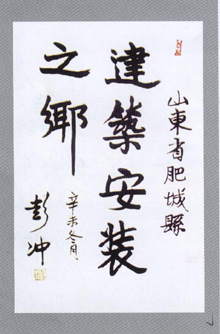 山東省肥城縣
建築安装
之鄉
辛未冬月
彭冲